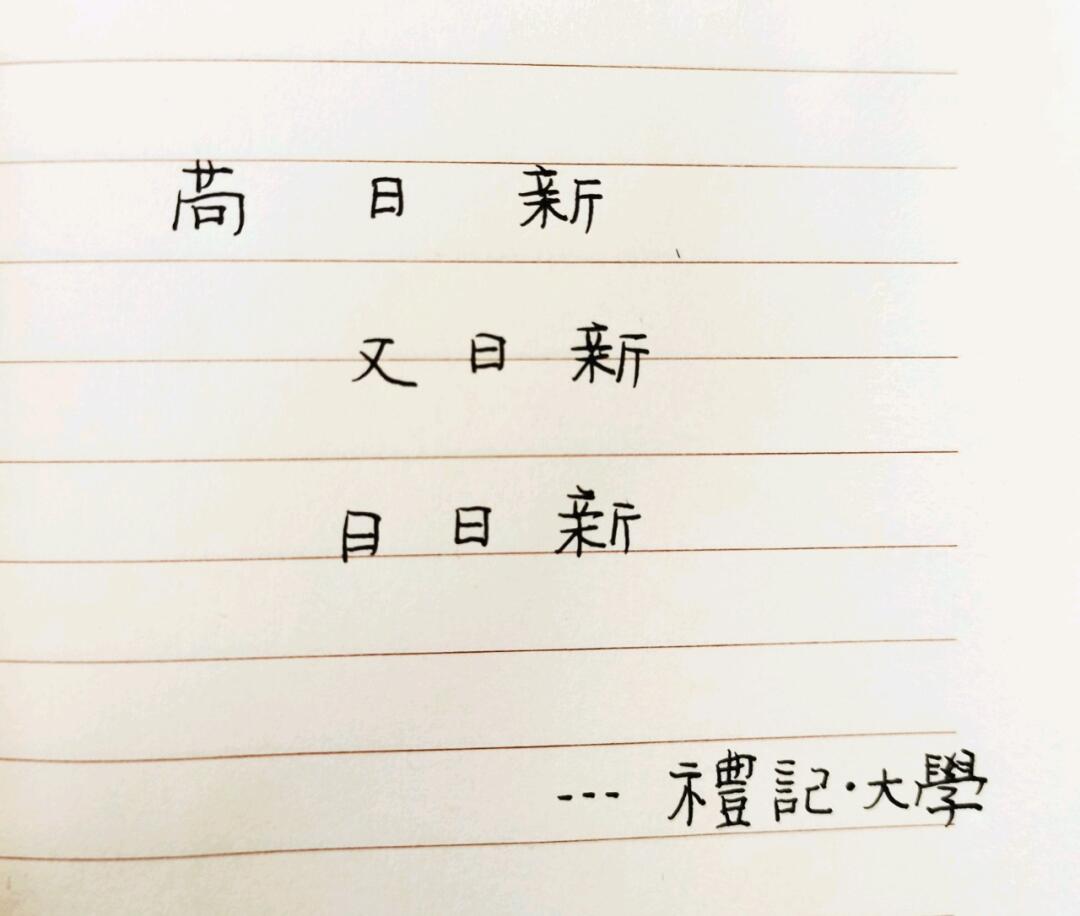 苟 日 新
又 日 新
日 日 新
--- 禮記·大學